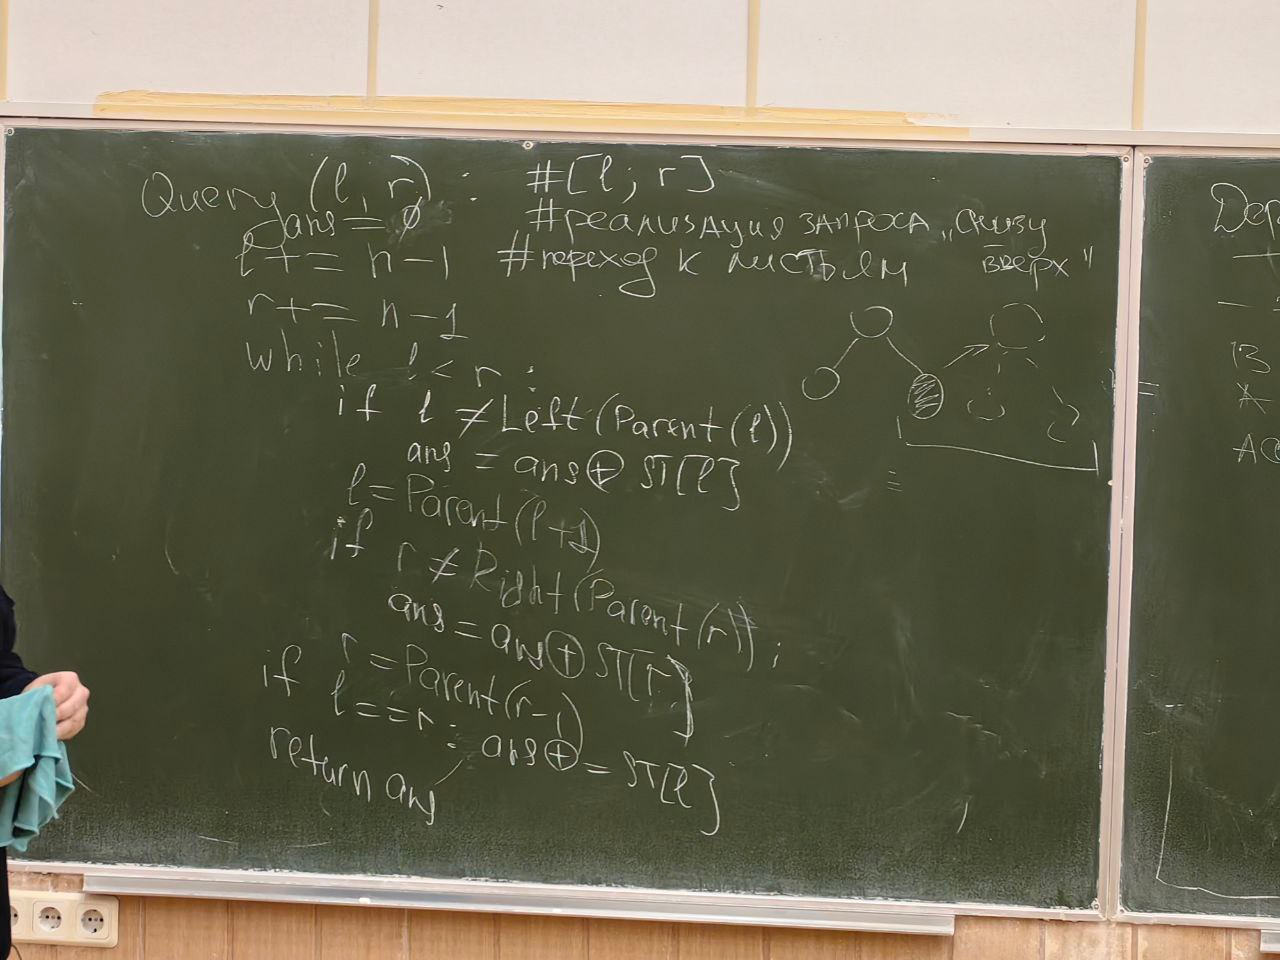 Query (l, r) : #[l; r]
ans = ∅ #реализация запроса „снизу вверх"
l += n-1 #переход к листьям
r += n-1
while l < r :
if l ≠ Left(Parent(l))
ans = ans ⊕ ST[l]
l = Parent(l+1)
if r ≠ Right(Parent(r)) :
ans = ans ⊕ ST[r]
r = Parent(r-1)
if l == r : ans ⊕ = ST[l]
return ans